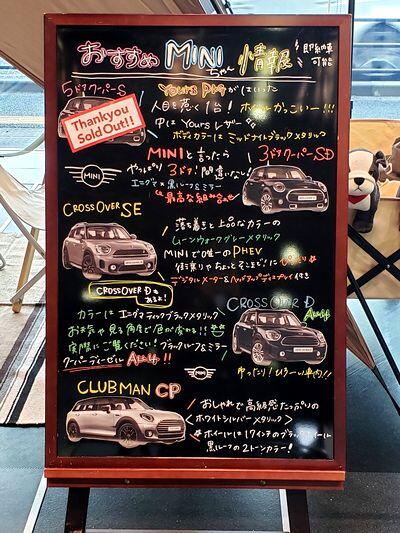 おすすめ MINIちゃん 情報 即納車可能
5ドアクーパーS
Yours PKGがはいった
人目を惹く1台！ホイールかっこいー!!!
中は Yours レザー
ボディカラーは ミッドナイトブラックメタリック
Thankyou
Sold Out!!
MINIと言ったら 3ドアクーパーSD
やっぱり3ドア！間違いない！
エニグマ×黒ルーフ&ミラー
最高な組み合わせ
MINI
CROSSOVER SE
落ち着きと上品なカラーの
ムーンウォークグレーメタリック
MINIで唯一のPHEV
街乗りやちょっとそこまで！にぴったり
デジタルメーター&ヘッドアップディスプレイ付き
CROSSOVER Dもあるよ！
CROSSOVER D ALL4
カラーは エニグマティックブラックメタリック
お天気や見る角度で色が変わる!!
実際にご覧ください！ブラックルーフ&ミラー
クーパーディーゼル ALL4!!
ゆったり！ひろーい車内!!
MINI
CLUBMAN CP
おしゃれで高級感たっぷりの
<ホワイトシルバーメタリック>
ホイールは17インチのブラックホイール
黒ルーフの2トーンカラー！